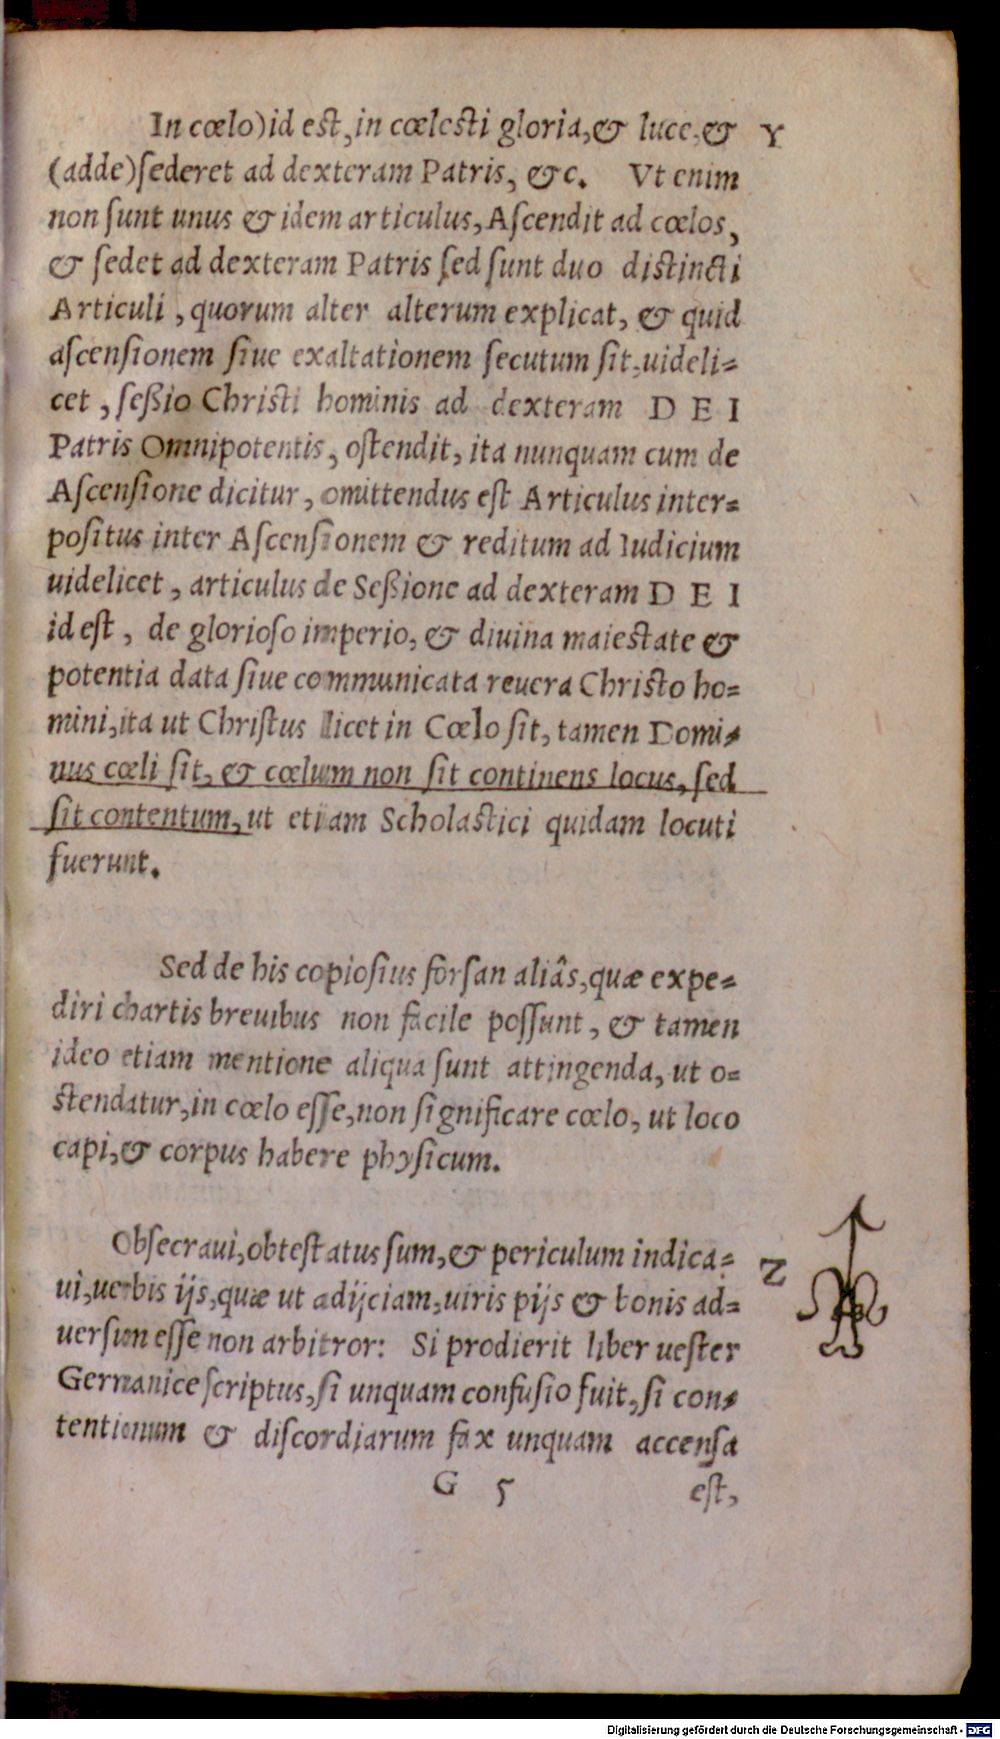 In cœlo) id est, in cœlesti gloria, & luce, & Y
(adde) ſederet ad dexteram Patris, &c. Vt enim
non ſunt unus & idem articulus, Aſcendit ad cœlos,
& ſedet ad dexteram Patris ſed ſunt duo distincti
Articuli, quorum alter alterum explicat, & quid
aſcenſionem ſiue exaltationem ſecutum ſit, uideli=
cet, ſeßio Christi hominis ad dexteram DEI
Patris Omnipotentis, oſtendit, ita nunquam cum de
Aſcenſione dicitur, omittendus eſt Articulus inter=
poſitus inter Aſcenſionem & reditum ad Iudicium
uidelicet, articulus de Seßione ad dexteram DEI
id eſt, de glorioſo imperio, & diuina maiestate &
potentia data ſiue communicata reuera Christo ho=
mini, ita ut Chriſtus licet in Cœlo ſit, tamen Domi=
nus cœli ſit, & cœlum non ſit continens locus, ſed
ſit contentum, ut etiam Scholastici quidam locuti
fuerunt.
Sed de his copioſius forſan aliâs, quæ expe=
diri chartis breuibus non facile poſſunt, & tamen
ideo etiam mentione aliqua ſunt attingenda, ut o=
stendatur, in cœlo eſſe, non ſignificare cœlo, ut loco
capi, & corpus habere phyſicum.
Obſecraui, obteſtatus ſum, & periculum indica= Z
ui, uerbis ijs, quæ ut adijciam, uiris pijs & bonis ad=
uerſum eſſe non arbitror: Si prodierit liber ueſter
Germanice ſcriptus, ſi unquam confuſio fuit, ſi con=
tentionum & diſcordiarum fax unquam accenſa
G 5 eſt,
Digitalisierung gefördert durch die Deutsche Forschungsgemeinschaft - DFG